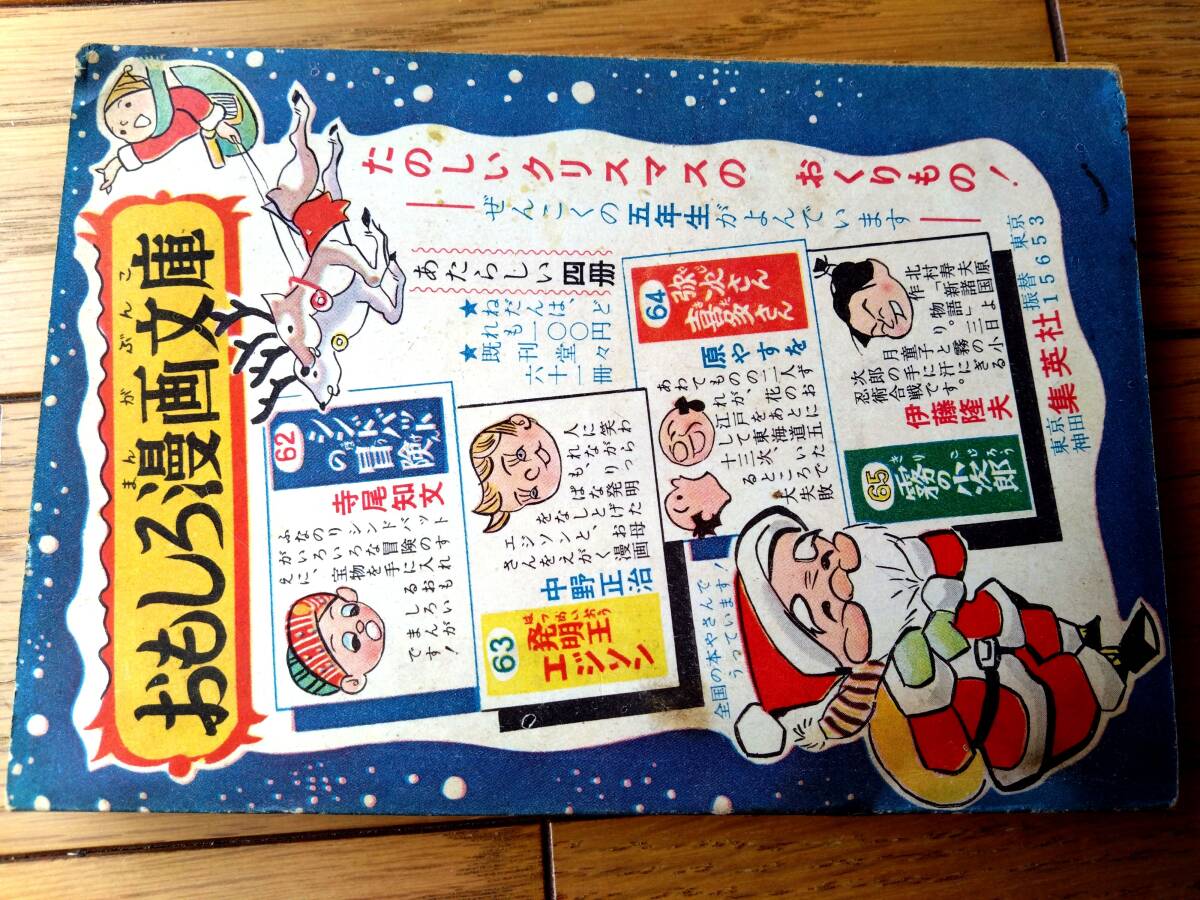 おもしろ漫画文庫
まんがぶんこ
たのしいクリスマスの おくりもの!
ぜんこくの五年生がよんでいます
あたらしい四冊
★ねだんは、ど
れも一〇〇円
★既刊堂々
六十一冊
62
シンドバット
の冒険
ぼうけん
寺尾知文
ふなのりシンドバット
がいろいろな冒険のす
えに、宝物を手に入れ
るおもしろいまんが
です!
63
発明王
はつめいおう
エジソン
中野正治
人に笑わ
れながら
も、りっ
ぱな発明
をなしとげた
エジソンと、お母
さんをえがく漫画
64
弥次さん
喜多さん
原やすを
あわてものの二人ず
れが、花のお
江戸をあとに
して東海道五
十三次、いた
るところで
大失敗
65
霧の小次郎
きり こじろう
伊藤隆夫
北村寿夫原
作「新諸国
物語」よ
り。三日
月童子と霧の小
次郎の手に汗にぎる
忍術合戦です。
全国の本やさんで
うっています!
東京神田
集英社
振替東京
15653